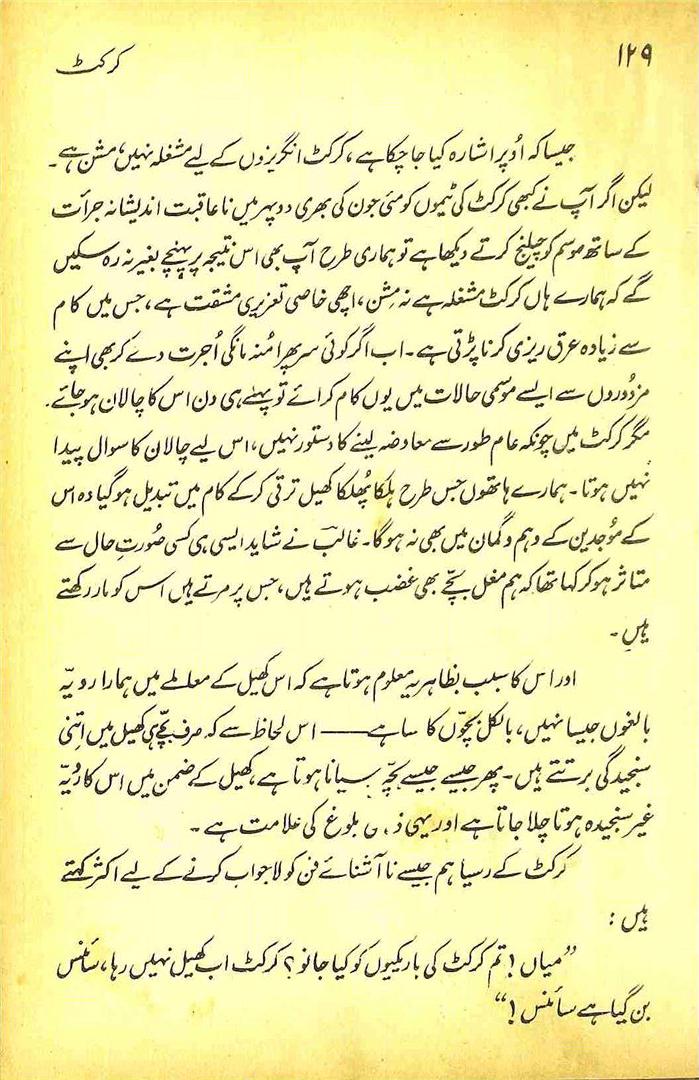 ۱۲۹
کرکٹ
جیسا کہ اُوپر اشارہ کیا جا چکا ہے، کرکٹ انگریزوں کے لیے مشغلہ نہیں، مشن ہے۔
لیکن اگر آپ نے کبھی کرکٹ کی ٹیموں کو مئی جون کی بھری دوپہر میں ناعاقبت اندیشانہ جرأت
کے ساتھ موسم کو چیلنج کرتے دیکھا ہے تو ہماری طرح آپ بھی اس نتیجہ پر پہنچے بغیر نہ رہ سکیں
گے کہ ہمارے ہاں کرکٹ مشغلہ ہے نہ مِشن، اچھی خاصی تعزیری مشقت ہے، جس میں کام
سے زیادہ عرق ریزی کرنا پڑتی ہے۔ اب اگر کوئی سر پھرا مُنہ مانگی اُجرت دے کر بھی اپنے
مزدوروں سے ایسے موسمی حالات میں یوں کام کرائے تو پہلے ہی دن اس کا چالان ہو جائے۔
مگر کرکٹ میں چونکہ عام طور سے معاوضہ لینے کا دستور نہیں، اس لیے چالان کا سوال پیدا
نہیں ہوتا۔ ہمارے ہاتھوں جس طرح ہلکا پُھلکا کھیل ترقی کر کے کام میں تبدیل ہو گیا وہ اس
کے مُوجدین کے وہم و گمان میں بھی نہ ہو گا۔ غالبؔ نے شاید ایسی ہی کسی صُورتِ حال سے
متاثر ہو کر کہا تھا کہ ہم مغل بچّے بھی غضب ہوتے ہیں، جس پر مرتے ہیں اس کو مار رکھتے
ہیں۔
اور اس کا سبب بظاہر یہ معلوم ہوتا ہے کہ اس کھیل کے معاملے میں ہمارا رویّہ
بالغوں جیسا نہیں، بالکل بچّوں کا سا ہے —— اس لحاظ سے کہ صرف بچّے ہی کھیل میں اتنی
سنجیدگی برتتے ہیں۔ پھر جیسے جیسے بچّہ سیانا ہوتا ہے کھیل کے ضمن میں اس کا رویّہ
غیر سنجیدہ ہوتا چلا جاتا ہے اور یہی بلوغ کی علامت ہے۔
کرکٹ کے رسیا ہم جیسے ناآشنائے فن کو لاجواب کرنے کے لیے اکثر کہتے
ہیں:
”میاں! تم کرکٹ کی باریکیوں کو کیا جانو؟ کرکٹ اب کھیل نہیں رہا، سائنس
بن گیا ہے سائنس!“